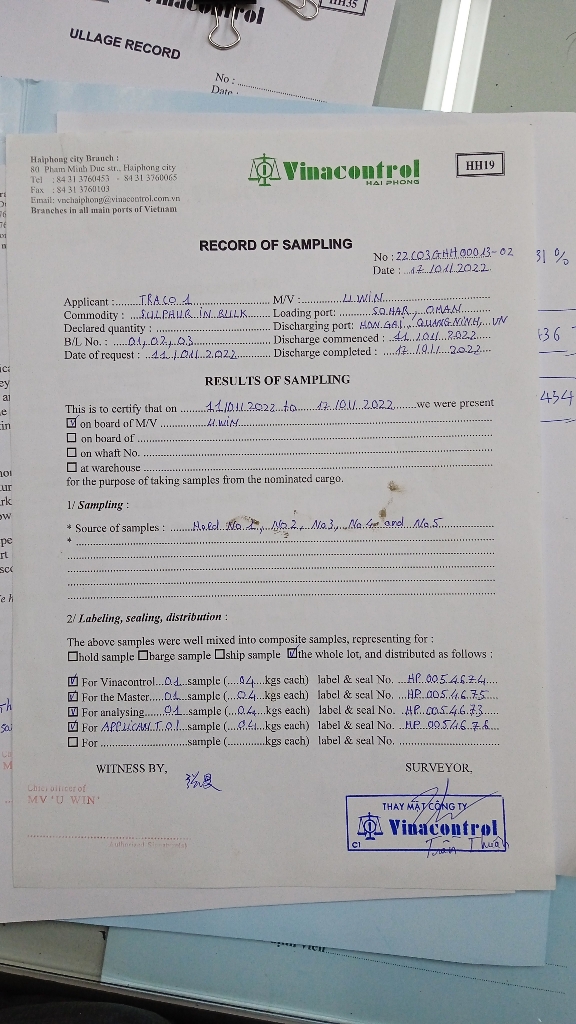 Vinacontrol
HH35
ULLAGE RECORD
No :
Date
Haiphong city Branch :
80 Pham Minh Duc str., Haiphong city
Tel : 84 31 3760453 - 84 31 3760065
Fax : 84 31 3760103
Email: vnchaiphong@vinacontrol.com.vn
Branches in all main ports of Vietnam
Vinacontrol
HAI PHONG
HH19
RECORD OF SAMPLING
No : 22G03GHH00013-02
Date : 12/01/2022
31 %
Applicant : TRACO 1 M/V : U WIN
Commodity : SULPHUR IN BULK Loading port: SOHAR, OMAN
Declared quantity : Discharging port: HON GAI, QUANG NINH, VN
B/L No. : 01, 02, 03 Discharge commenced : 11/01/2022
Date of request : 11/01/2022 Discharge completed : 12/01/2022
RESULTS OF SAMPLING
This is to certify that on 11/01/2022 to 12/01/2022 we were present
☑ on board of M/V U WIN
☐ on board of
☐ on whaft No.
☐ at warehouse
for the purpose of taking samples from the nominated cargo.
1/ Sampling :
* Source of samples : Hold No 1, No 2, No 3, No 4 and No 5
*
2/ Labeling, sealing, distribution :
The above samples were well mixed into composite samples, representing for :
☐hold sample ☐barge sample ☐ship sample ☑the whole lot, and distributed as follows :
☑ For Vinacontrol 01 sample ( 04 kgs each) label & seal No. HP 0054674
☑ For the Master 01 sample ( 04 kgs each) label & seal No. HP 0054675
☑ For analysing 01 sample ( 04 kgs each) label & seal No. HP 0054673
☑ For APPLICANT 01 sample ( 04 kgs each) label & seal No. HP 0054676
☐ For sample ( kgs each) label & seal No.
WITNESS BY, SURVEYOR,
Chief officer of
MV 'U WIN'
THAY MẶT CÔNG TY
Vinacontrol
C1
Trần Thuân